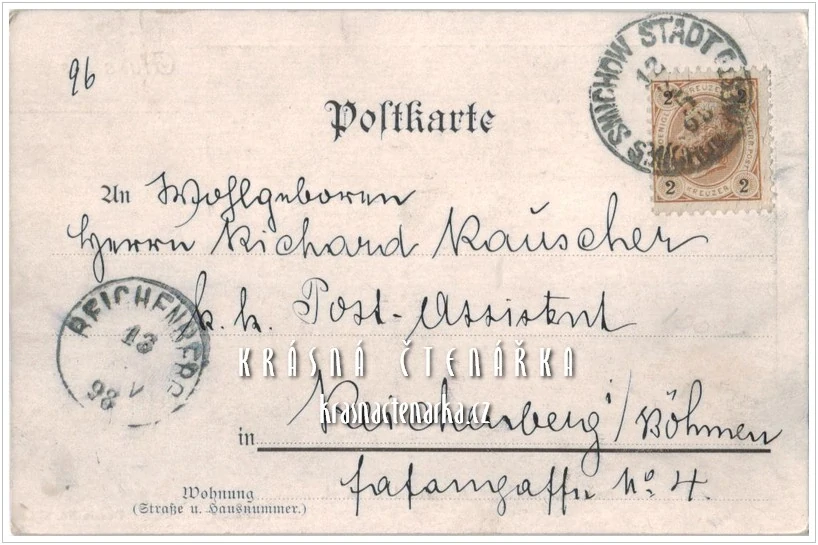 96
Postkarte
SMICHOW STADT
12
2 KREUZER 2
2 KREUZER 2
An Wohlgeboren
Herrn Richard Rauscher
k. k. Post-Assistent
REICHENBERG
13
V
98
KRÁSNÁ ČTENÁŘKA
krasnactenarka.cz
in Reichenberg i/Böhmen
Fasangasse No. 4.
Wohnung
(Straße u. Hausnummer.)